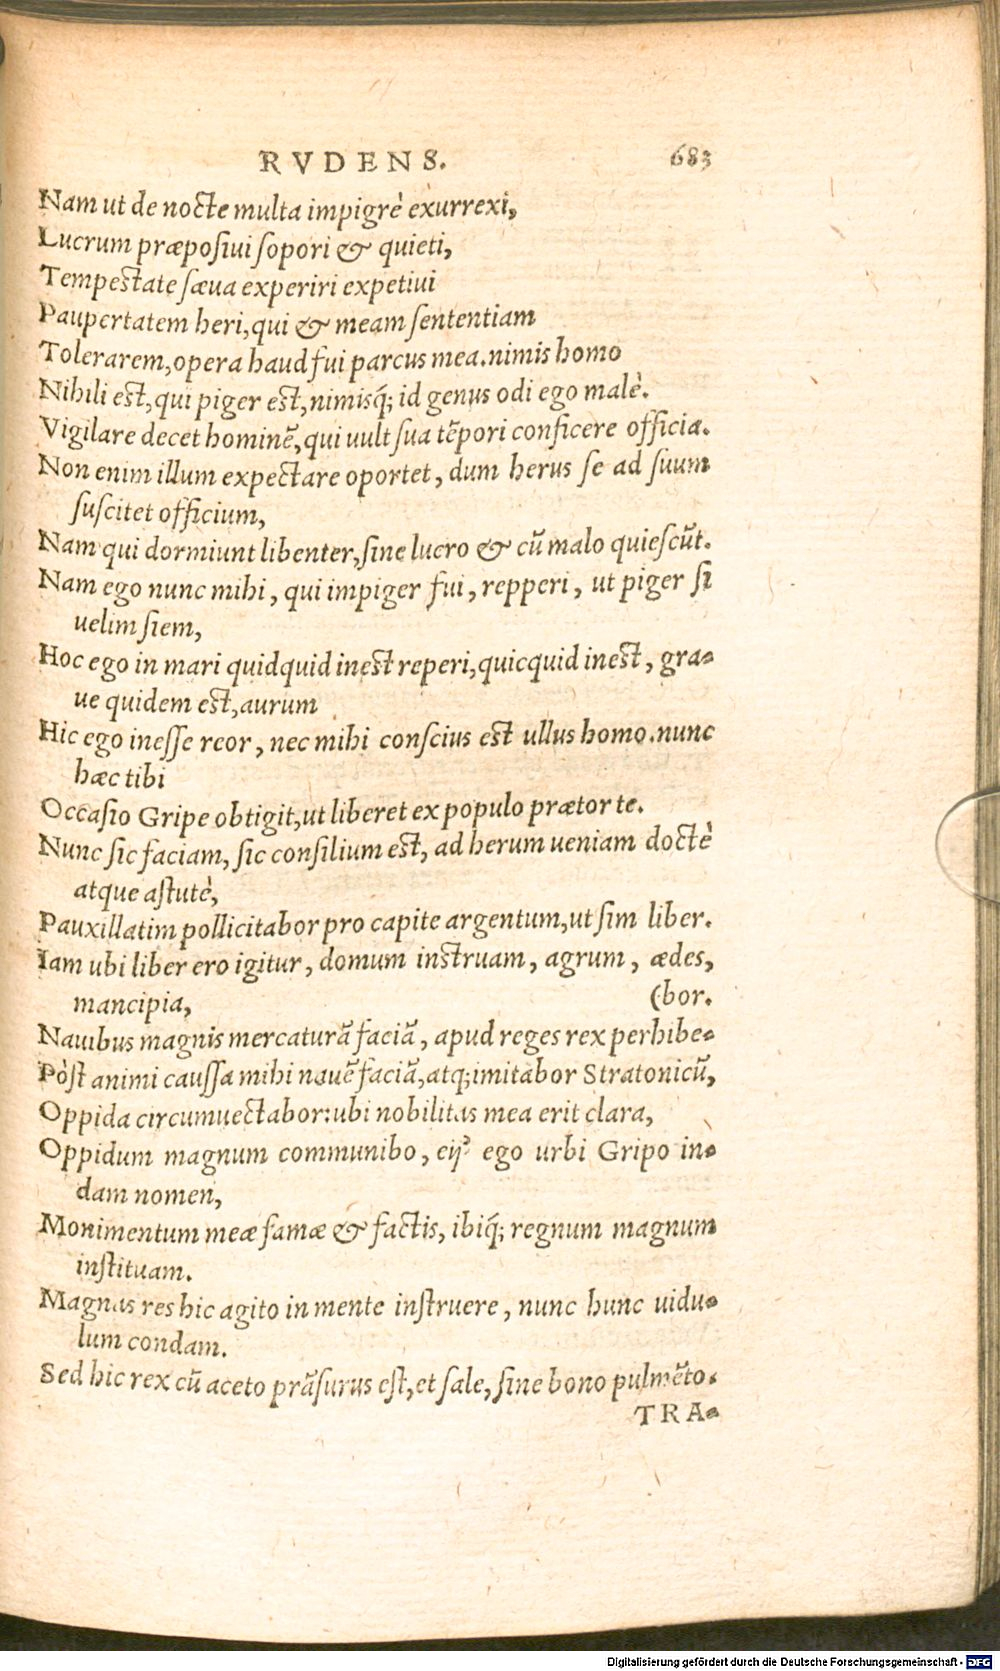 RVDENS. 683
Nam ut de nocte multa impigrè exurrexi,
Lucrum præposiui sopori & quieti,
Tempestate sæua experiri expetiui
Paupertatem heri, qui & meam sententiam
Tolerarem, opera haud fui parcus mea. nimis homo
Nihili est, qui piger est, nimisq́; id genus odi ego malè.
Vigilare decet hominē, qui uult sua tēpori conficere officia.
Non enim illum expectare oportet, dum herus se ad suum
suscitet officium,
Nam qui dormiunt libenter, sine lucro & cū malo quiescūt.
Nam ego nunc mihi, qui impiger fui, repperi, ut piger si
uelim siem,
Hoc ego in mari quidquid inest reperi, quicquid inest, gra-
ue quidem est, aurum
Hic ego inesse reor, nec mihi conscius est ullus homo. nunc
hæc tibi
Occasio Gripe obtigit, ut liberet ex populo prætor te.
Nunc sic faciam, sic consilium est, ad herum ueniam doctè
atque astutè,
Pauxillatim pollicitabor pro capite argentum, ut sim liber.
Iam ubi liber ero igitur, domum instruam, agrum, ædes,
mancipia, (bor.
Nauibus magnis mercaturā faciā, apud reges rex perhibe-
Pòst animi caussa mihi nauē faciā, atq; imitabor Stratonicū,
Oppida circumuectabor: ubi nobilitas mea erit clara,
Oppidum magnum communibo, eiꝰ ego urbi Gripo in-
dam nomen,
Monimentum meæ famæ & factis, ibiq́; regnum magnum
instituam.
Magnas res hic agito in mente instruere, nunc hunc uidu-
lum condam.
Sed hic rex cū aceto prāsurus est, et sale, sine bono pulmēto.
TRA-
Digitalisierung gefördert durch die Deutsche Forschungsgemeinschaft - DFG